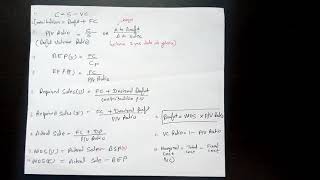 C = S - VC
Contribution = Profit + FC
P/V Ratio = C/S or Δ in Profit / Δ in Sales
(Profit Volume Ratio) (when 2 year data is given)
BEP(U) = FC / C pu
BEP(₹) = FC / P/V Ratio
Required Sales(U) = FC + Desired Profit / contribution PU
Required Sales = FC + Desired Profit / P/V Ratio
Profit = MOS × P/V Ratio
Actual Sale = FC + DP / P/V Ratio
VC Ratio = 1 - P/V Ratio
MOS(U) = Actual Sales - BEP(U)
MOS(₹) = Actual Sale - BEP
Marginal cost = Total cost - Fixed cost
(VC)